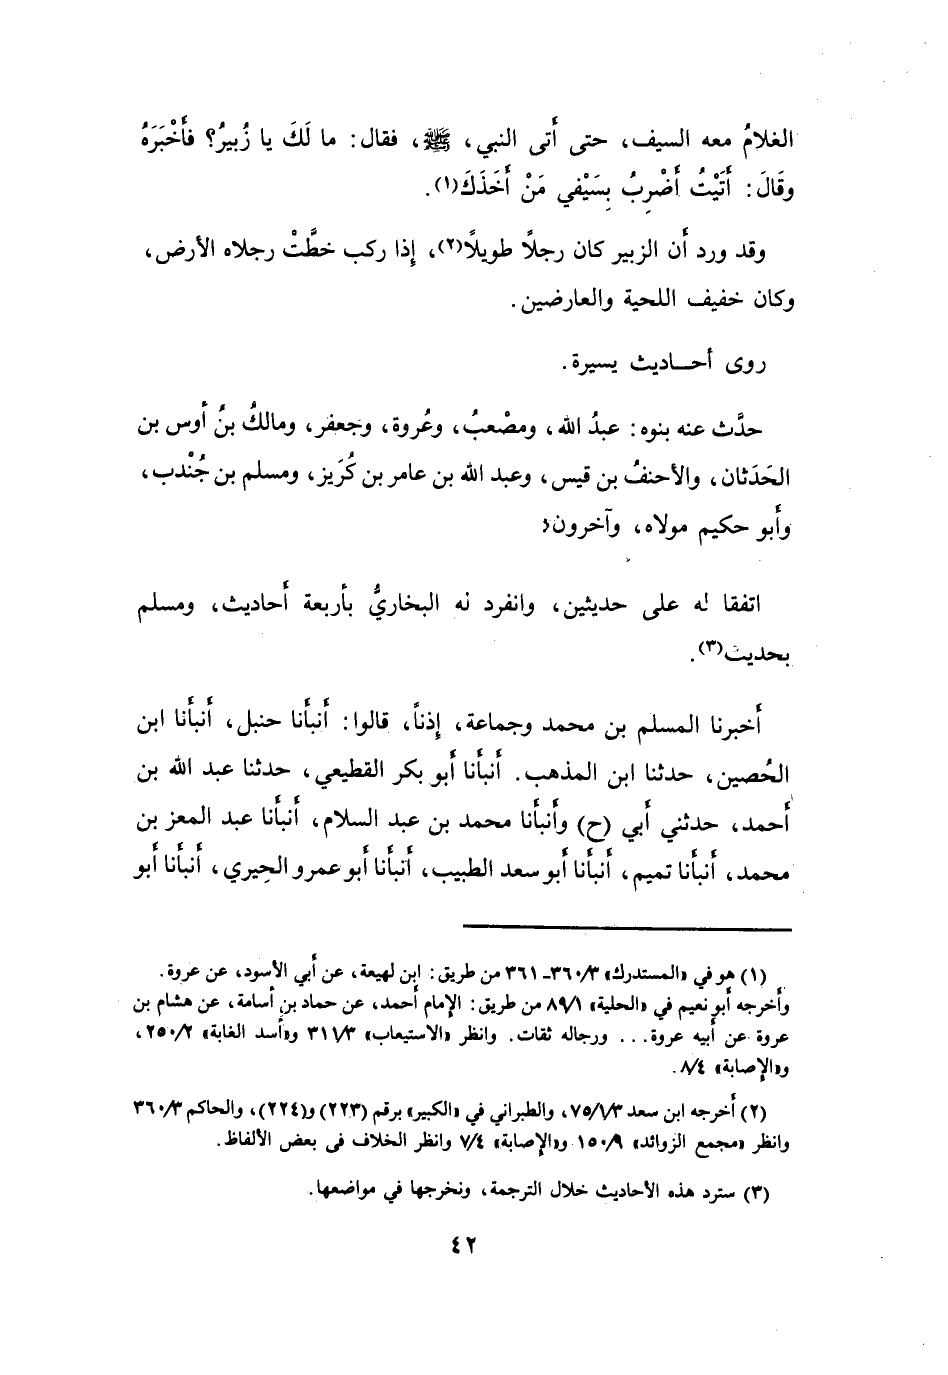 الغلامُ معه السيف، حتى أَتى النبي، ﷺ، فقال: ما لَكَ يا زُبيرُ؟ فأَخْبَرَهُ
وقَالَ: أَتَيْتُ أَضْرِبُ بِسَيْفي مَنْ أَخَذَكَ(١).
وقد ورد أَن الزبير كان رجلًا طويلًا(٢)، إِذا ركب خطَّتْ رجلاه الأرض،
وكان خفيف اللحية والعارضين.
روى أحاديث يسيرة.
حدَّث عنه بنوه: عبدُ الله، ومصْعبُ، وعُروة، وجعفر، ومالكُ بنُ أوس بن
الحَدَثان، والأحنفُ بن قيس، وعبد الله بن عامر بن كُرَيز، ومسلم بن جُنْدب،
وأَبو حكيم مولاه، وآخرون.
اتفقا له على حديثين، وانفرد له البخاريُّ بأربعة أَحاديث، ومسلم
بحديث(٣).
أَخبرنا المسلم بن محمد وجماعة، إِذناً، قالوا: أَنبأَنا حنبل، أَنبأَنا ابن
الحُصين، حدثنا ابن المذهب. أَنبأَنا أَبو بكر القطيعي، حدثنا عبد الله بن
أَحمد، حدثني أَبي (ح) وأَنبأَنا محمد بن عبد السلام، أَنبأَنا عبد المعز بن
محمد، أَنبأَنا تميم، أَنبأَنا أَبو سعد الطبيب، أَنبأَنا أَبو عمرو الحِيري، أَنبأَنا أَبو
(١) هو في «المستدرك» ٣٦٠/٣ـ ٣٦١ من طريق: ابن لهيعة، عن أَبي الأسود، عن عروة.
وأَخرجه أَبو نعيم في «الحلية» ٨٩/١ من طريق: الإمام أَحمد، عن حماد بن أسامة، عن هشام بن
عروة عن أَبيه عروة... ورجاله ثقات. وانظر «الاستيعاب» ٣١١/٣ و«أسد الغابة» ٢٥٠/٢،
و«الإصابة» ٨/٤.
(٢) أَخرجه ابن سعد ٧٥/١/٣، والطبراني في «الكبير» برقم (٢٢٣) و(٢٢٤)، والحاكم ٣٦٠/٣
وانظر «مجمع الزوائد» ١٥٠/٩ و«الإصابة» ٧/٤ وانظر الخلاف في بعض الألفاظ.
(٣) سترد هذه الأحاديث خلال الترجمة، ونخرجها في مواضعها.
٤٢